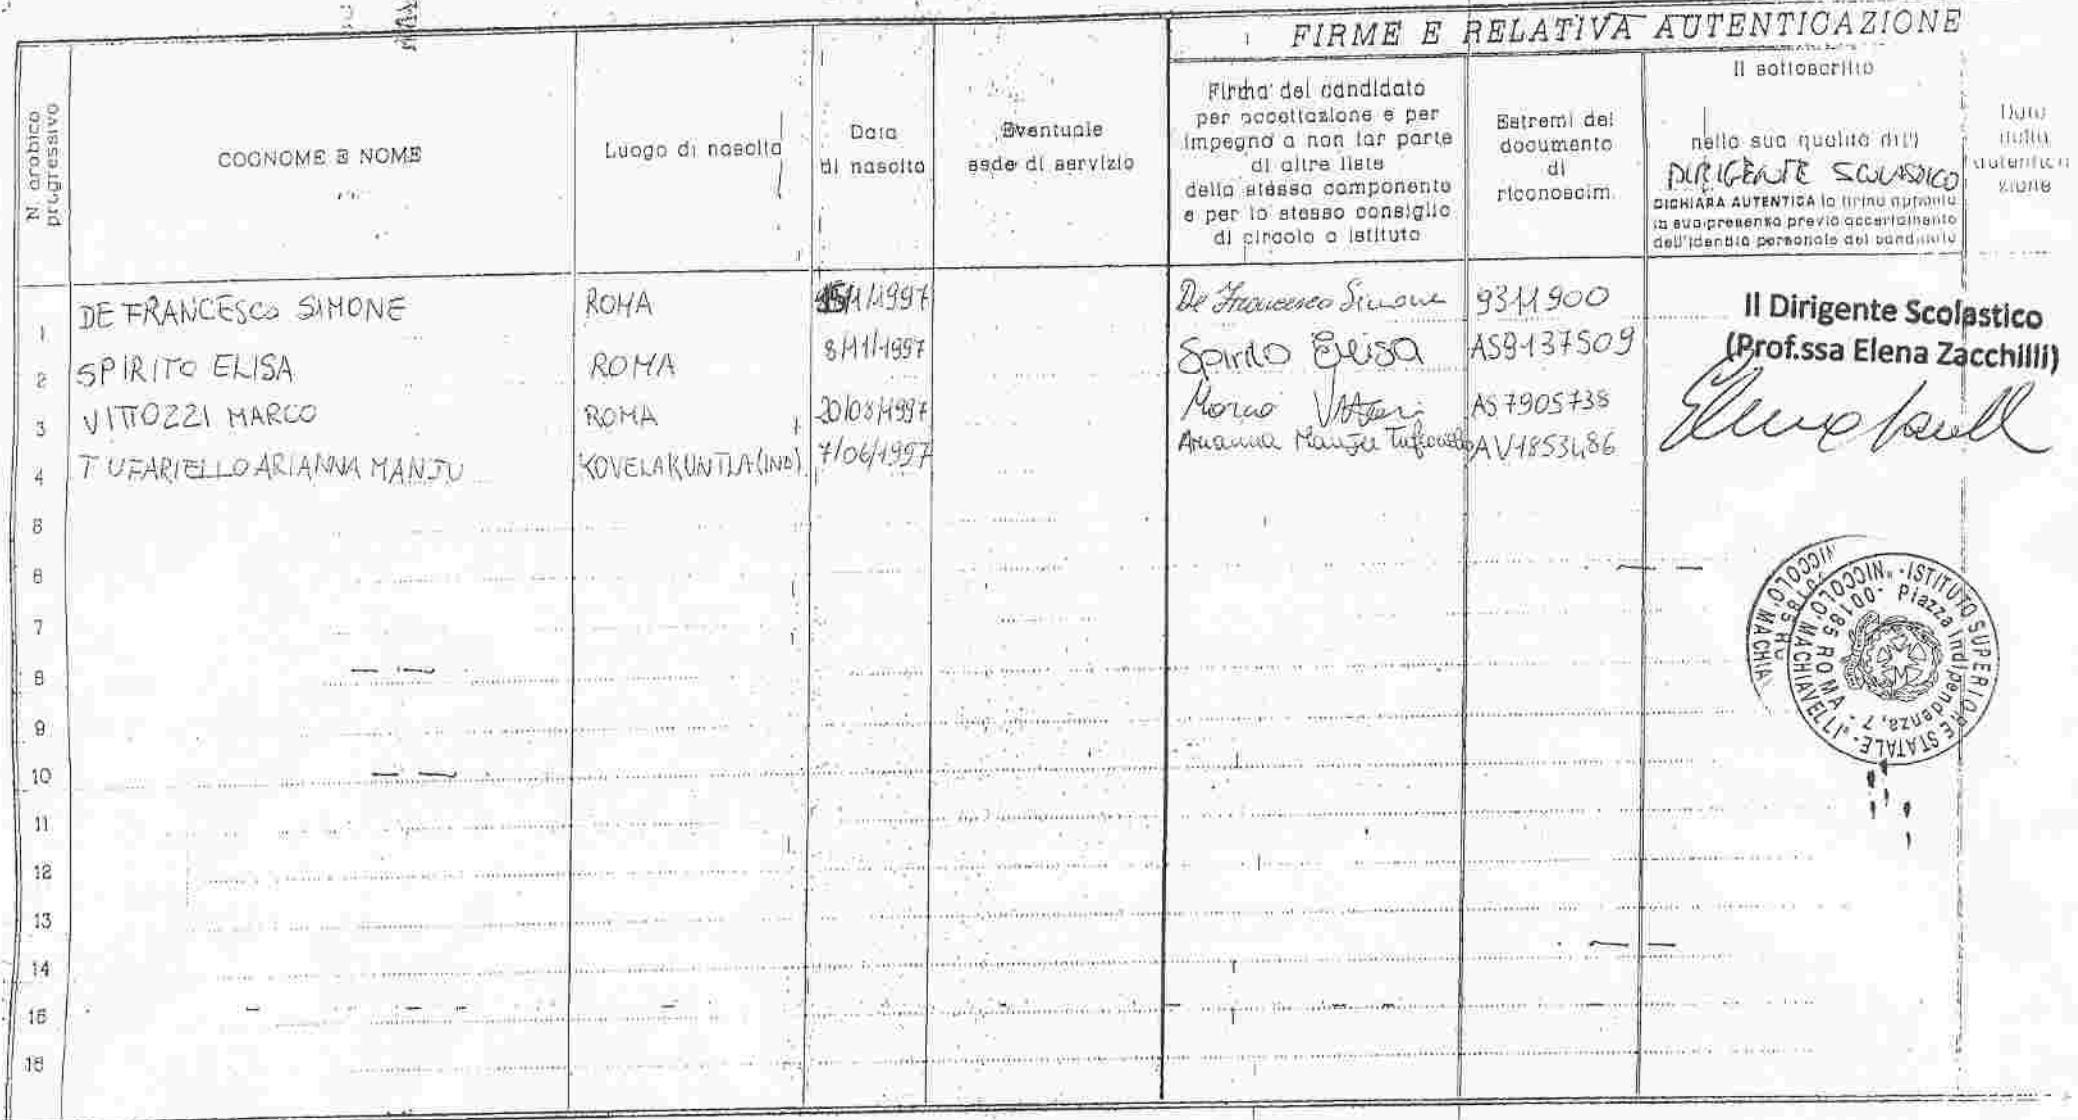 FIRME E RELATIVA AUTENTICAZIONE
N. arabico
progressivo
COGNOME E NOME
Luogo di nascita
Data
di nascita
Eventuale
sede di servizio
Firma del candidato
per accettazione e per
impegno a non far parte
di altre liste
della stessa componente
e per lo stesso consiglio
di circolo o istituto
Estremi del
documento
di
riconoscim.
Il sottoscritto
nella sua qualità di
DIRIGENTE SCOLASTICO
DICHIARA AUTENTICA la firma apposta
in sua presenza previo accertamento
dell'identità personale del candidato
Data
della
autentica
zione
1 DE FRANCESCO SIMONE ROMA /1/1997 De Francesco Simone 9311900
2 SPIRITO ELISA ROMA 8/11/1997 Spirito Elisa AS9137509
3 VITTOZZI MARCO ROMA 20/08/1997 Marco Vittozzi AS7905738
4 TUFARIELLO ARIANNA MANJU KOVELAKUNTLA (IND) 7/06/1997 Arianna Manju Tufariello AV1853486
Il Dirigente Scolastico
(Prof.ssa Elena Zacchilli)
5
6
7
8
9
10
11
12
13
14
15
16
ISTITUTO SUPERIORE STATALE - "NICCOLO' MACHIAVELLI"
Piazza Indipendenza, 7 - 00185 ROMA